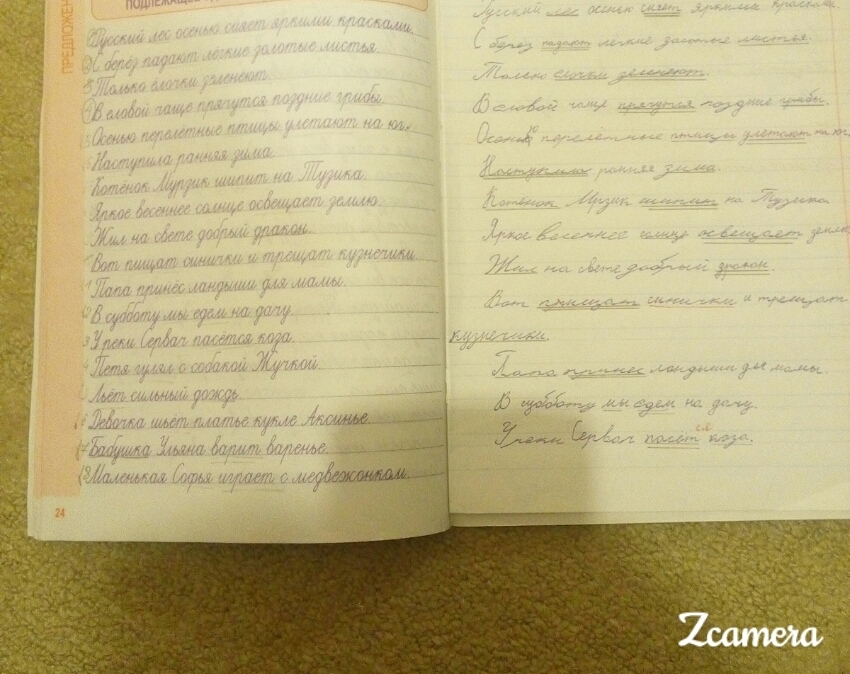 ПРЕДЛОЖЕН
ПОДЛЕЖАЩЕЕ
Русский лес осенью сияет яркими красками.
С берёз падают лёгкие золотые листья.
Только ёлочки зеленеют.
В еловой чаще прячутся поздние грибы.
Осенью перелётные птицы улетают на юг.
Наступила ранняя зима.
Котёнок Мурзик шипит на Тузика.
Яркое весеннее солнце освещает землю.
Жил на свете добрый дракон.
Вот пищат синички и трещат кузнечики.
Папа принёс ландыши для мамы.
В субботу мы едем на дачу.
У реки Сервач пасётся коза.
Петя гулял с собакой Жучкой.
Льёт сильный дождь.
Девочка шьёт платье кукле Аксинье.
Бабушка Ульяна варит варенье.
Маленькая Софья играет с медвежонком.
24
Русский лес осенью сияет яркими краскам.
С берёз падают лёгкие золотые листья.
Только ёлочки зеленеют.
В еловой чаще прячутся поздние грибы.
Осенью перелётные птицы улетают на юг
Наступила ранняя зима.
Котёнок Мрзик шипит на Тузика
Яркое весеннее солнце освещает землю
Жил на свете добрый дракон.
Вот пищат синички и трещат
кузнечики.
Папа принес ландыши для мамы.
В субботу мы едем на дачу.
У реки Сервач пасётся коза.
Zcamera